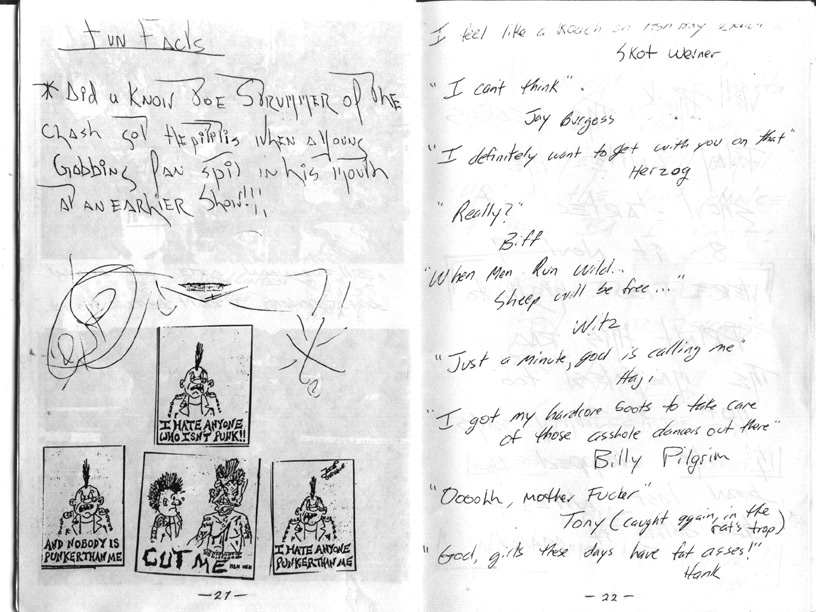 Fun Facts
* Did u Know Joe Strummer of the
clash got Hepititis when a Young
Gobbing Fan spit in his Mouth
at an earlier Show!!!;;
I HATE ANYONE
WHO ISN'T PUNK!!
AND NOBODY IS
PUNKER THAN ME
CUT ME
HEH HEH
I HATE ANYONE
PUNKER THAN ME
-21-
I feel like a Roach on
Skot Werner
"I can't think".
Jay Burgess
"I definitely want to get with you on that"
Herzog
"Really?"
Biff
"When Men Run Wild...
Sheep will be free..."
Witz
"Just a minute, god is calling me"
Haji
"I got my hardcore boots to take care
of those asshole dancers out there"
Billy Pilgrim
"Oooohh, mother Fucker"
Tony (caught again, in the
rat's trap)
"God, girls these days have fat asses!"
Hank
-22-